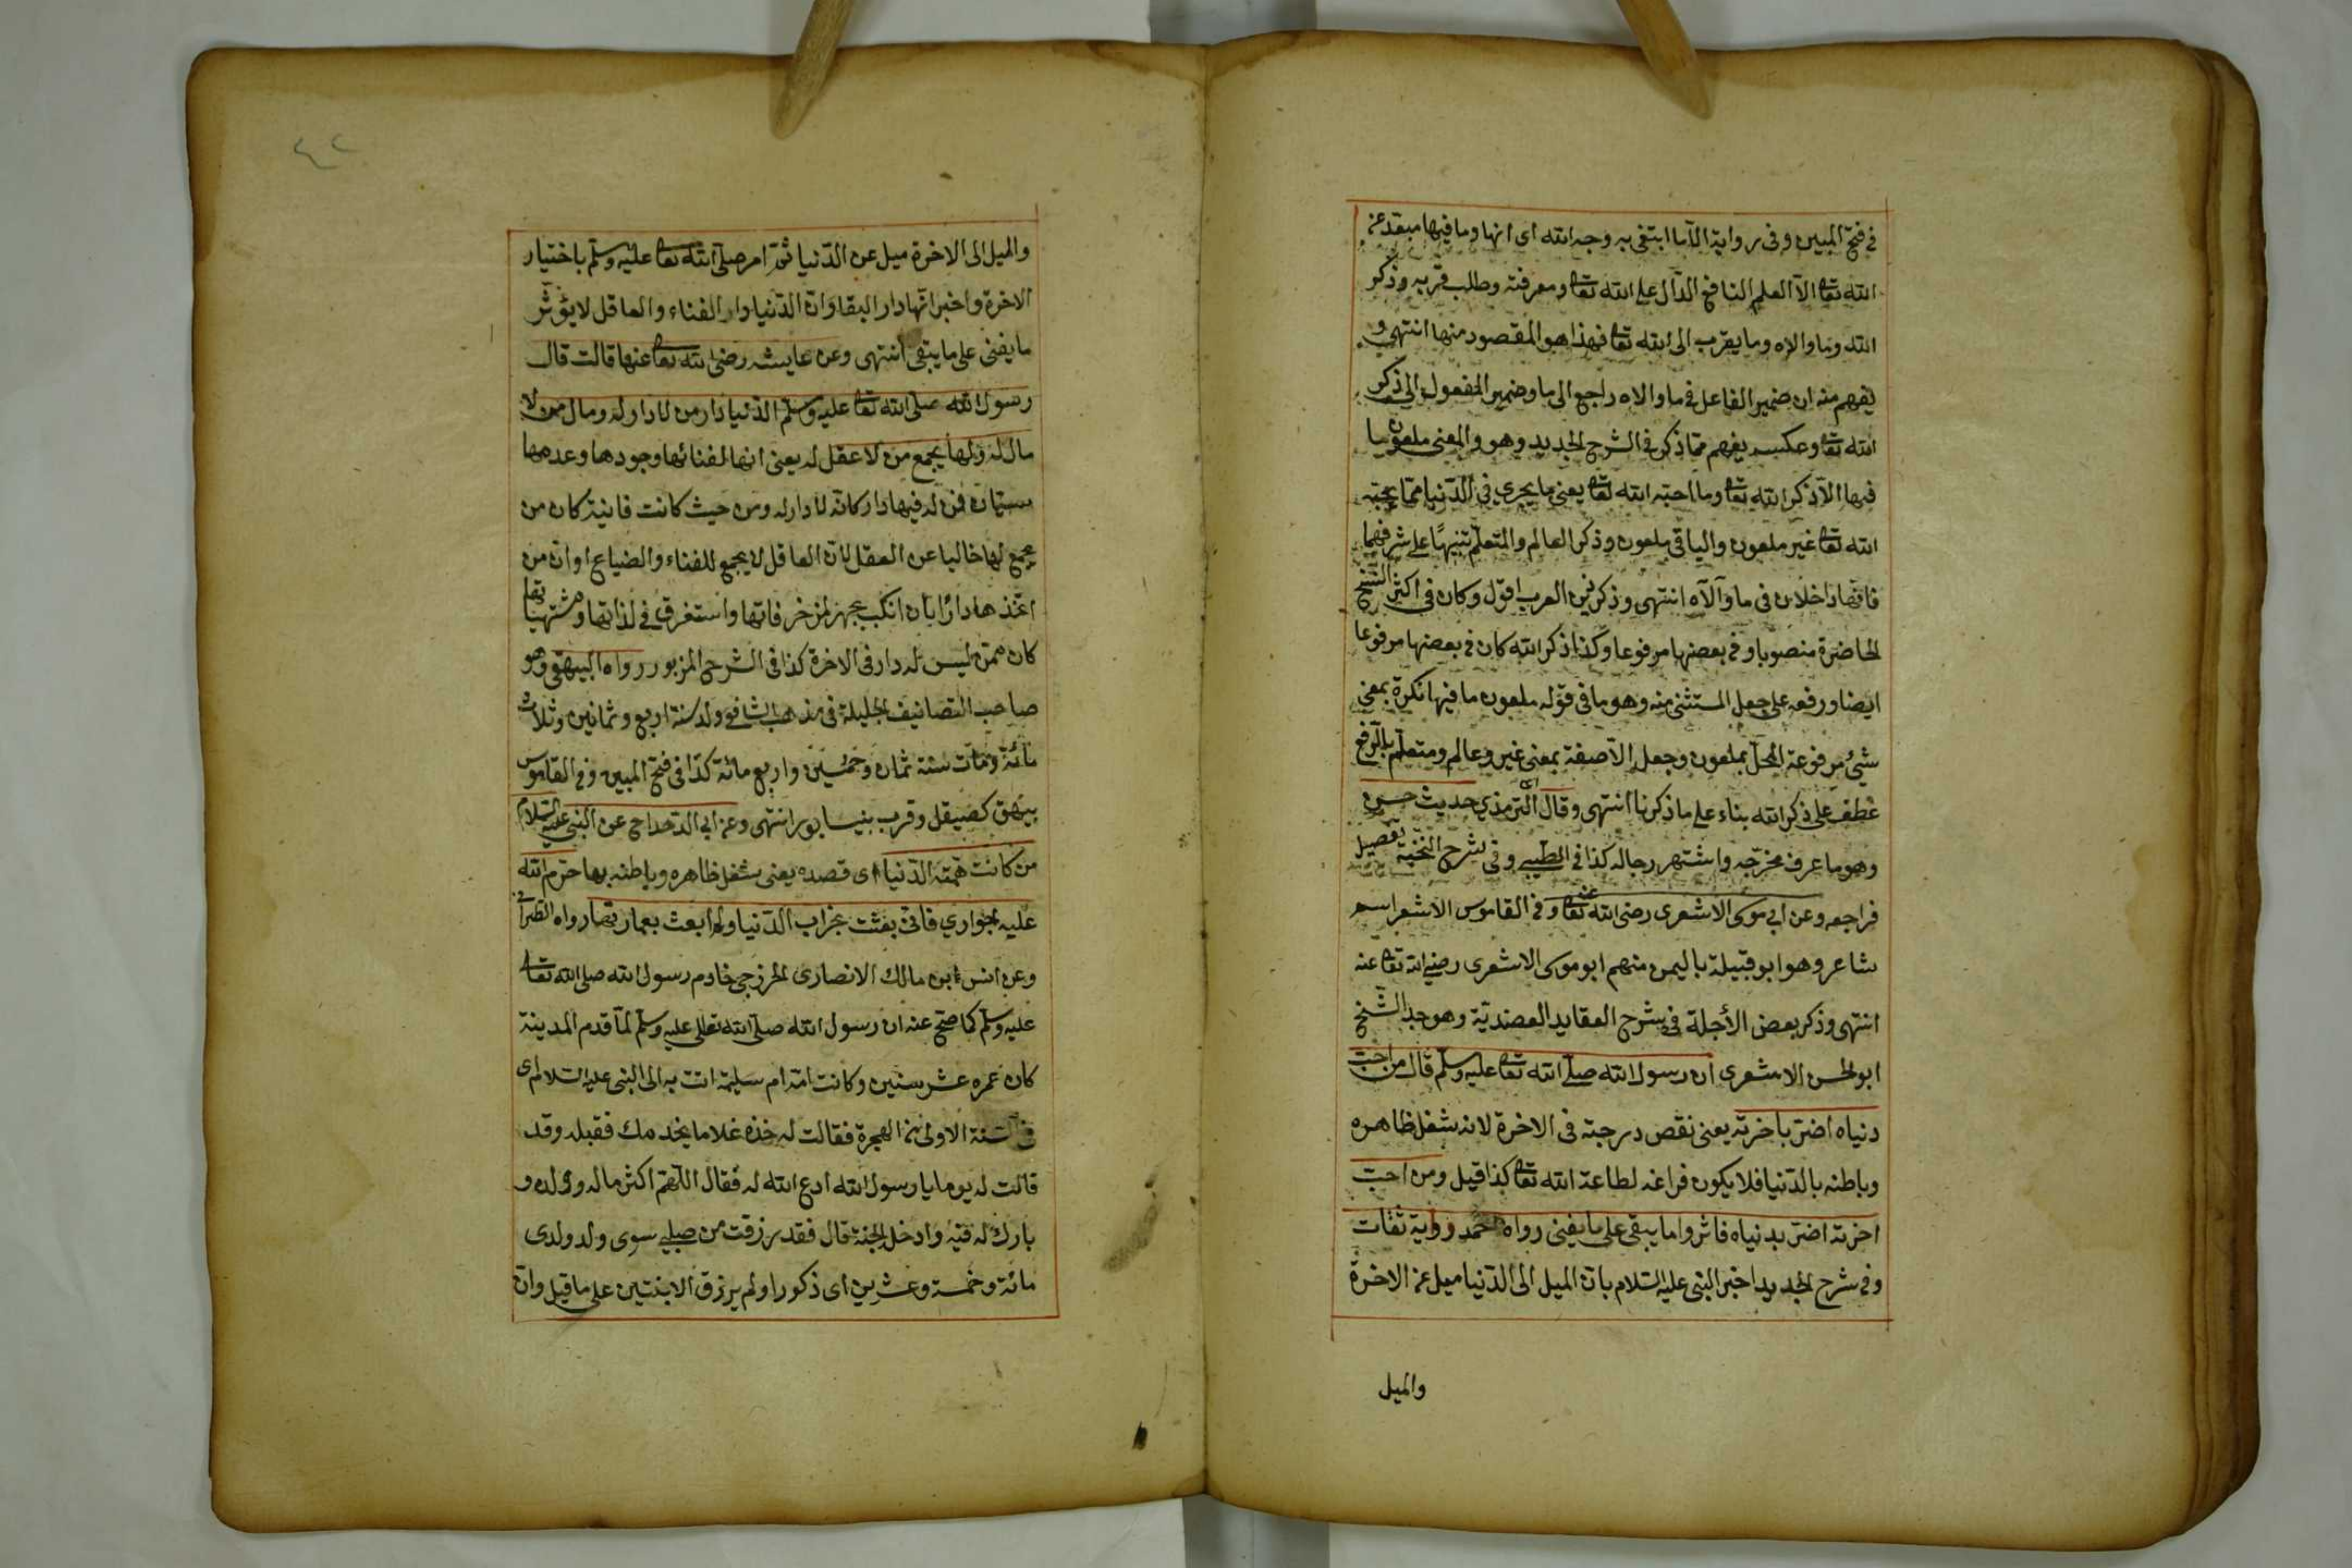 في فتح المبين وفى رواية الا ما ابتغى به وجه الله اى انها وما فيها مبعد عن
الله تعا الا العلم النافع الدال على الله تعا ومعرفته وطلب قربه وذكر
الله وما والاه وما يقرب الى الله تعا فهذا هو المقصود منها انتهى و
يفهم منه ان ضمير الفاعل فى ما والاه راجع الى ما وضمير المفعول الى ذكر
الله تعا وعكسه يفهم مما ذكر فى الشرح الجديد وهو والمعنى ملعون ما
فيها الا ذكر الله تعا وما احبه الله تعا يعنى ما يجرى فى الدنيا مما يحبه
الله تعا غير ملعون والباقى ملعون وذكر العالم والمتعلم تنبيهًا على شرفهما
فانهما داخلان فى ما والاه انتهى وذكر زين العرب اقول وكان فى اكثر النسخ
الحاضرة منصوبا وفى بعضها مرفوعا وكذا ذكر الله كان فى بعضها مرفوعا
ايضا ورفعه على جعل المستثنى منه وهو ما فى قوله ملعون ما فيها نكرة بمعنى
شئ مرفوعة المحل بملعون وجعل الا صفة بمعنى غير وعالم ومتعلم بالرفع
عطف على ذكر الله بناء على ما ذكرنا انتهى وقال الترمذى حديث حسن
وهو ما عرف مخرجه واشتهر رجاله كذا فى الطيبى وفى شرح النخبة تفصيل
فراجعه وعن ابى موسى الاشعرى رضى الله تعا عنه وفى القاموس الاشعر اسم
شاعر وهو ابو قبيلة باليمن منهم ابو موسى الاشعرى رضى الله تعا عنه
انتهى وذكر بعض الأجلة فى شرح العقايد العضدية وهو جد الشيخ
ابو الحسن الاشعرى ان رسول الله صلى الله تعا عليه وسلم قال من احب
دنياه اضر باخرته يعنى نقص درجته فى الاخرة لانه شغل ظاهره
وباطنه بالدنيا فلا يكون فراغه لطاعة الله تعا كذا قيل ومن احب
اخرته اضر بدنياه فاثروا ما يبقى على ما يفنى رواه احمد ورواية ثقات
وفى شرح الجديد اخبر النبى عليه السلام بان الميل الى الدنيا ميل عن الاخرة
والميل
٤٢
والميل الى الاخرة ميل عن الدنيا ثم امر صلى الله تعا عليه وسلم باختيار
الاخرة واخبر انها دار البقا وان الدنيا دار الفناء والعاقل لا يؤثر
ما يفنى على ما يبقى انتهى وعن عايشه رضى الله تعا عنها قالت قال
رسول الله صلى الله تعا عليه وسلم الدنيا دار من لا دار له ومال من لا
مال له ولها يجمع من لا عقل له يعنى انها لفنائها وجودها وعدمها
سيان فمن له فيها دار كانه لا دار له ومن حيث كانت فانية كان من
يجمع لها خاليا عن العقل لان العاقل لا يجمع للفناء والضياع او ان من
اتخذها دارًا بان انكب بمزخرفاتها واستغرق فى لذاتها ومشتهياتها
كان ممن ليس له دار فى الاخرة كذا فى الشرح المزبور رواه البيهقى وهو
صاحب التصانيف الجليلة فى مذهب الشافعى ولد سنة اربع وثمانين وثلاث
مائة ومات سنة ثمان وخمسين واربع مائة كذا فى فتح المبين وفى القاموس
بيهق كصيقل وقرب بنيسابور انتهى وعن ابى الدحداح عن النبى عليه السلام
من كانت همته الدنيا اى قصده يعنى يشغل ظاهره وباطنه بها حرم الله
عليه جوارى فانى بعثت بخراب الدنيا ولم ابعث بعمارتها رواه الطبرانى
وعن انس ابن مالك الانصارى الخزرجى خادم رسول الله صلى الله تعا
عليه وسلم كما صح عنه ان رسول الله صلى الله تعالى عليه وسلم لما قدم المدينة
كان عمره عشر سنين وكانت امه ام سليمة اتت به الى النبى عليه السلام اى
فى السنة الاولى من الهجرة فقالت له خذه غلاما يخدمك فقبله وقد
قالت له يوما يا رسول الله ادع الله له فقال اللهم اكثر ماله وولده و
بارك له فيه وادخل الجنة قال فقد رزقت من صلبى سوى ولد ولدى
مائة وخمسة وعشرين اى ذكورا ولم يرزق الا بنتين على ما قيل وان